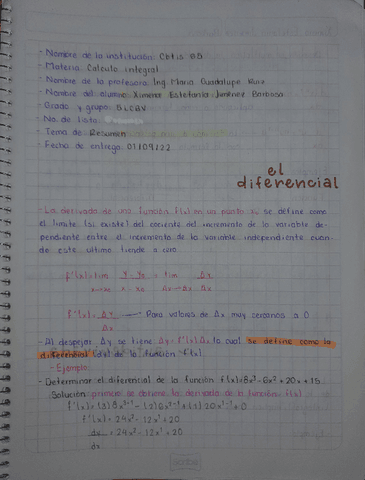 - Nombre de la institución: Cetis 65
- Materia: Calculo integral
- Nombre de la profesora: Ing Maria Guadalupe Ruiz
- Nombre del alumno: Ximena Estefanía Jiménez Barbosa
- Grado y grupo:
- No. de lista
- Tema de: Resumen
- Fecha de entrega: 07/09/22
el
diferencial
- La derivada de una función f(x) en un punto x₀ se define como
el límite (si existe) del cociente del incremento de la variable de-
pendiente entre el incremento de la variable independiente cuan-
do este ultimo tiende a cero.
f'(x)= lim y - y₀ = lim Δy
x→x₀ x - x₀ Δx→ Δx
f'(x)= Δy → Para valores de Δx muy cercanos a 0
Δx
- Al despejar, Δy se tiene Δy = f'(x) Δx lo cual se define como la
diferencial (dy) de la función f(x).
- Ejemplo:
- Determinar el diferencial de la función f(x)=8x³-6x²+20x+15
Solución: primero se obtiene la derivada de la función f(x)
f'(x)= (3)8x³⁻¹ - (2)6x²⁻¹ + (1)20x¹⁻¹ + 0
f'(x)= 24x² - 12x¹ + 20
dy = 24x² - 12x¹ + 20
dx
Scribe